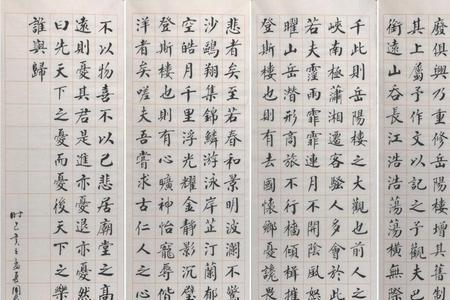 廢俱興乃重修岳陽樓增其
其上屬予作文以記之予觀夫巴
銜遠山吞長江浩浩蕩蕩橫無
千此則岳陽樓之大觀也前人之
峽南極瀟湘遷客騷人多會於此
若夫霪雨霏霏連月不開陰風怒
曜山岳潛形商旅不行檣傾楫摧
登斯樓也則有去國懷鄉憂讒畏
悲者矣至若春和景明波瀾不驚
沙鷗翔集錦鱗游泳岸芷汀蘭郁
空皓月千里浮光耀金靜影沉璧
登斯樓也則有心曠神怡寵辱偕
洋者矣嗟夫吾嘗求古仁人之心
不以物喜不以己悲居廟堂之高
遠則憂其君是進亦憂退亦憂然
曰先天下之憂而憂後天下之樂
誰與歸